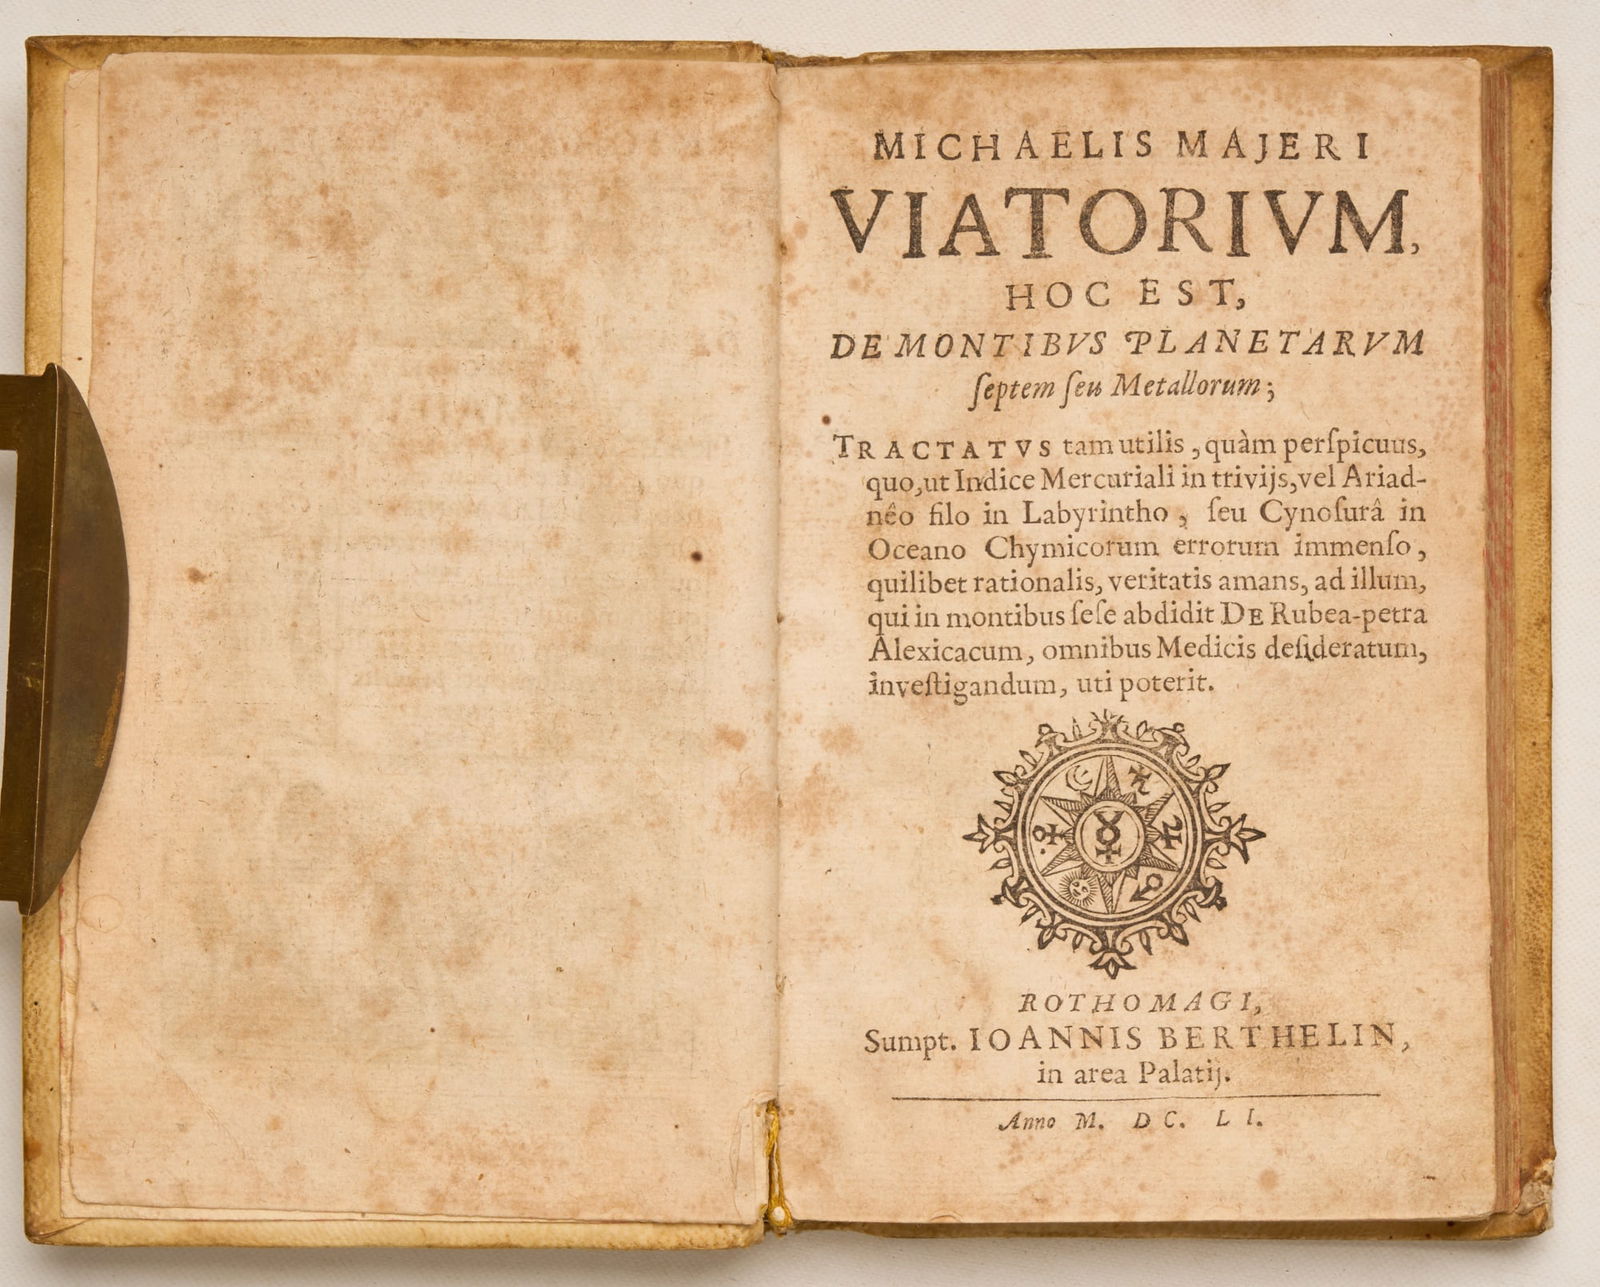 MICHAELIS MAJERI
VIATORIVM,
HOC EST,
DE MONTIBVS PLANETARVM
ſeptem ſeu Metallorum;
TRACTATVS tam utilis, quàm perſpicuus,
quo, ut Indice Mercuriali in trivijs, vel Ariad-
nêo filo in Labyrintho, ſeu Cynoſurâ in
Oceano Chymicorum errorum immenſo,
quilibet rationalis, veritatis amans, ad illum,
qui in montibus ſeſe abdidit DE Rubea-petra
Alexicacum, omnibus Medicis deſideratum,
inveſtigandum, uti poterit.
ROTHOMAGI,
Sumpt. IOANNIS BERTHELIN,
in area Palatij.
Anno M. DC. LI.